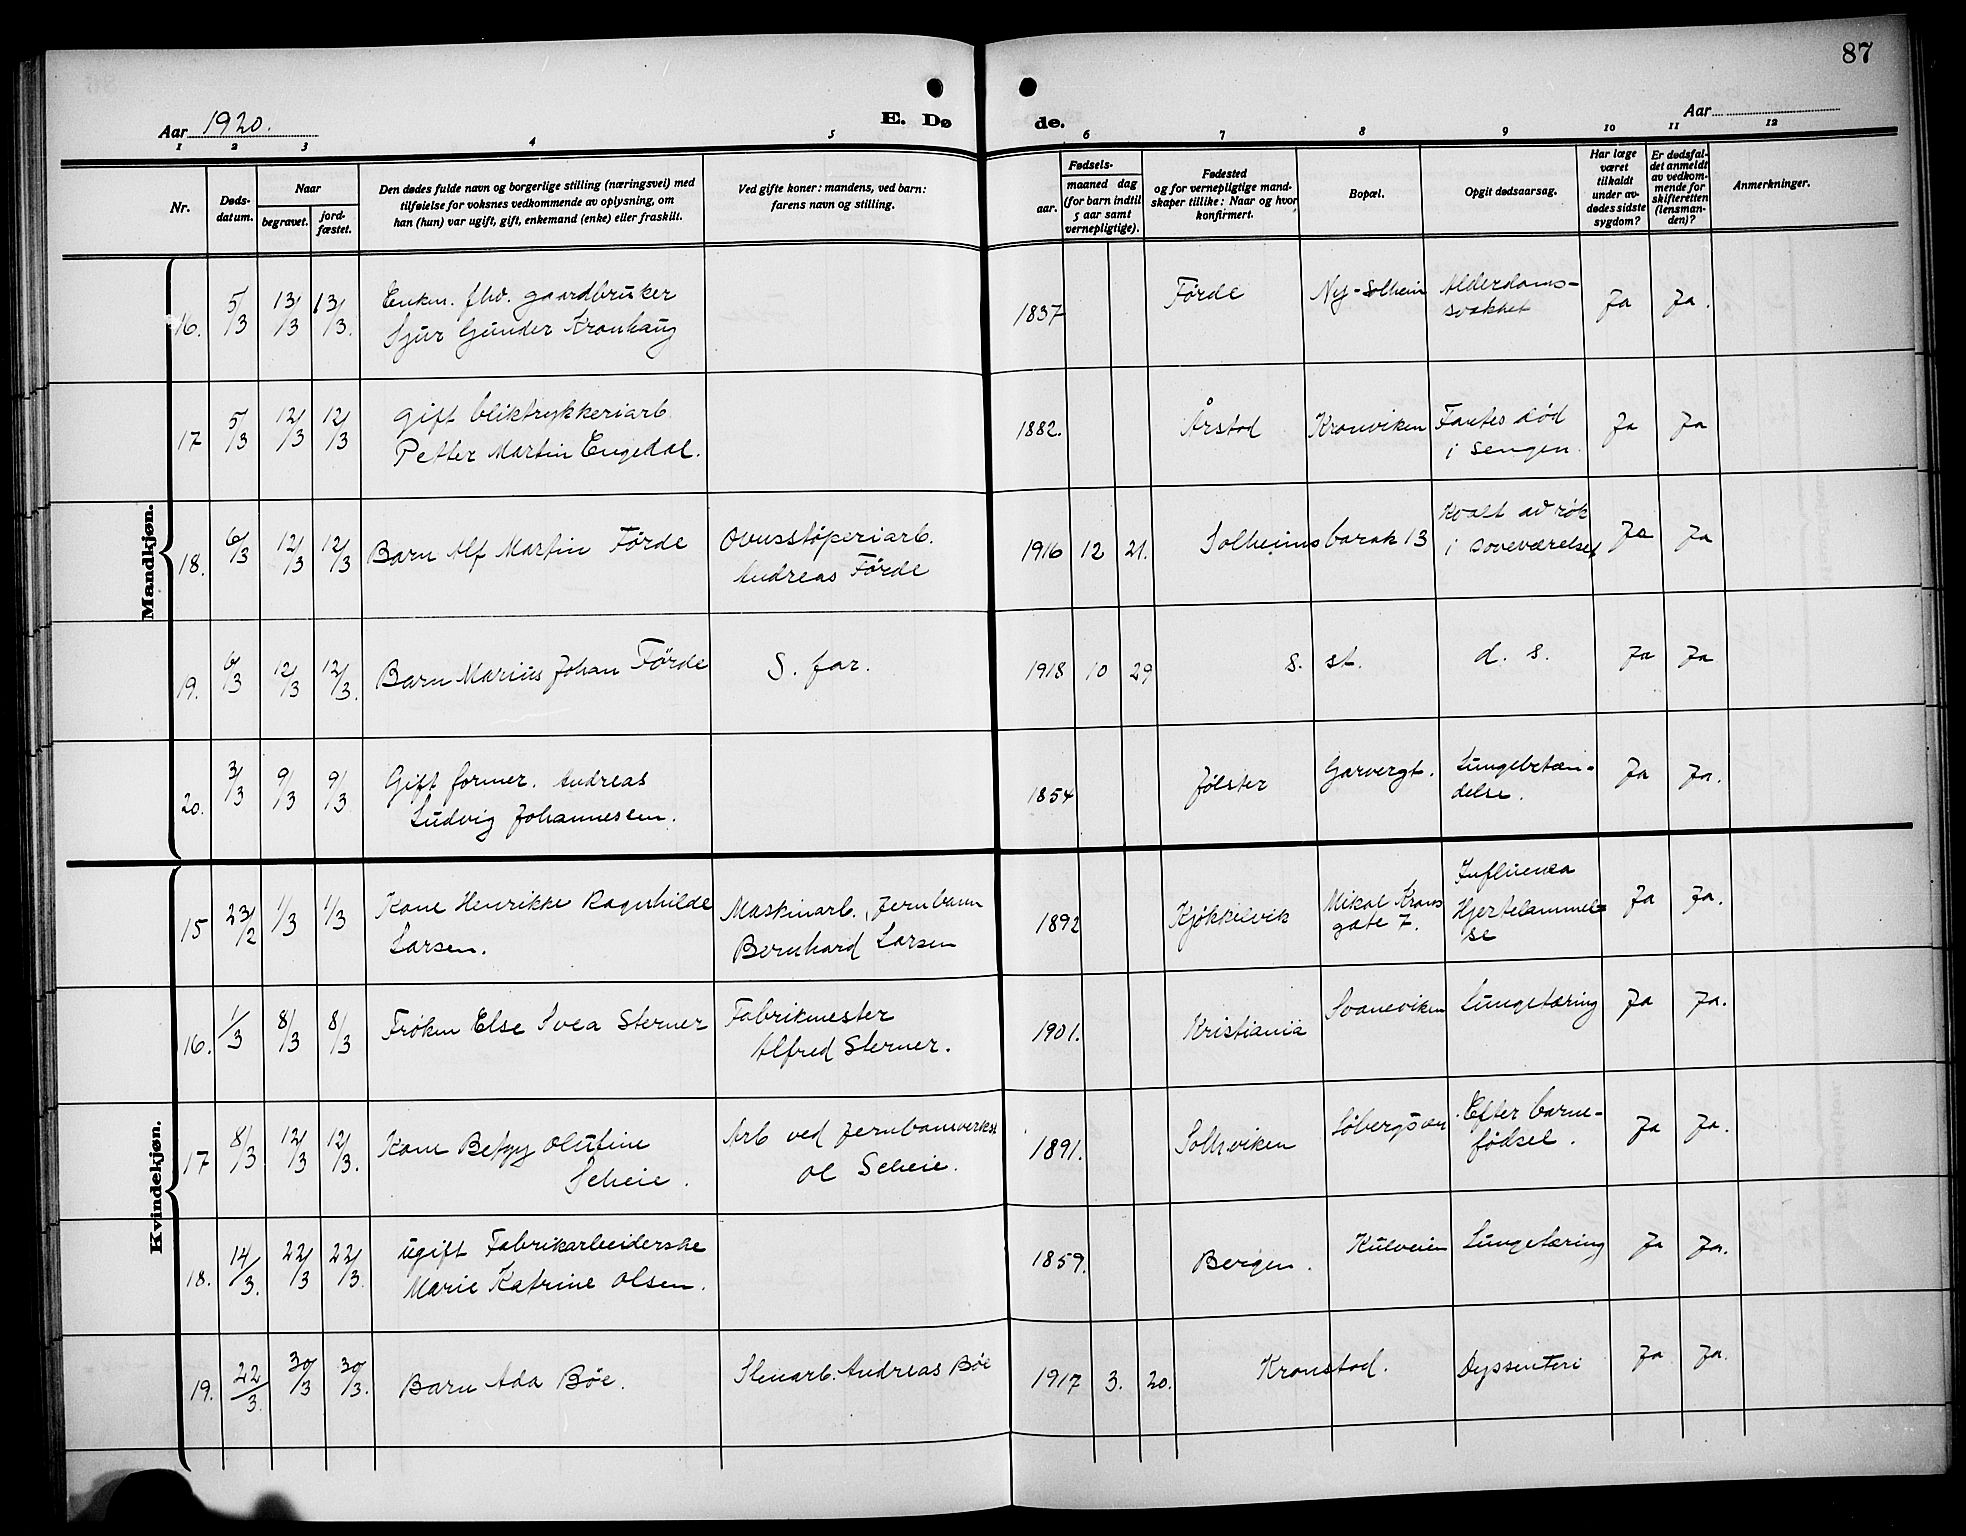 87
Aar 1920.
E. Dø de.
Aar
1 2 3 4 5 6 7 8 9 10 11 12
Nr.
Døds-
datum.
Naar
begravet.
jord-
fæstet.
Den dødes fulde navn og borgerlige stilling (næringsvei) med
tilføielse for voksnes vedkommende av oplysning, om
han (hun) var ugift, gift, enkemand (enke) eller fraskilt.
Ved gifte koner: mandens, ved barn:
farens navn og stilling.
Fødsels-
aar.
maaned dag
(for barn indtil
5 aar samt
vernepligtige).
Fødested
og for vernepligtige mand-
skaper tillike: Naar og hvor
konfirmert.
Bopæl.
Opgit dødsaarsag.
Har læge
været
tilkaldt
under av-
dødes sidste
sygdom?
Er dødsfal-
det anmeldt
av vedkom-
mende for
skifteretten
(lensman-
den)?
Anmerkninger.
Mandkjøn.
16. 5/3 13/3 13/3. Enkm. fhv. gaardbruker
Sjur Gunder Kronhaug
1837 Førde Ny-Solheim Alderdoms-
svakhet Ja Ja.
17 5/3 12/3 12/3 Gift bliktrykkeriarb.
Petter Martin Engedal.
1882. Årstad Kronviken Fantes død
i sengen. Ja Ja
18. 6/3 12/3 12/3 Barn Alf Martin Førde Ovnsstøperiarb.
Andreas Førde
1916 12 21. Solheimsbarak 13 Kvalt av røk
i soveværelset Ja Ja
19. 6/3 12/3 12/3. Barn Marius Johan Førde S. far.
1918 10 29 s. st. d. s. Ja Ja
20. 3/3 9/3 9/3 Gift former. Andreas
Ludvig Johannesen.
1854 Jølster Garvergt. Lungebetæn-
delse. Ja Ja.
Kvindekjøn.
15 23/2 1/3 1/3 Kone Henrikke Ragnhilde
Larsen.
Maskinarb. Jernbann
Bernhard Larsen
1892 Kjøkkelvik Mikal Krons
gate 7. Influensa
Hjertelammel-
se Ja Ja.
16. 1/3 8/3 8/3 Frøken Else Svea Sterner Fabrikmester
Alfred Sterner.
1901. Kristiania Svaneviken Lungetæring Ja Ja.
17 8/3 12/3 12/3. Kone Betzy Olutine
Scheie.
Arb ved Jernbanverkst
Ol Scheie.
1891. Solhviken Søbergsvei Efter barne-
fødsel. Ja Ja.
18. 14/3. 22/3 22/3. ugift Fabrikarbeiderske
Marie Katrine Olsen.
1859. Bergen. Kulveien Lungetæring Ja Ja.
19. 22/3. 30/3 30/3. Barn Ada Bøe. Stenarb. Andreas Bøe
1917 3. 20. Kronstad. Dyssenteri Ja Ja.